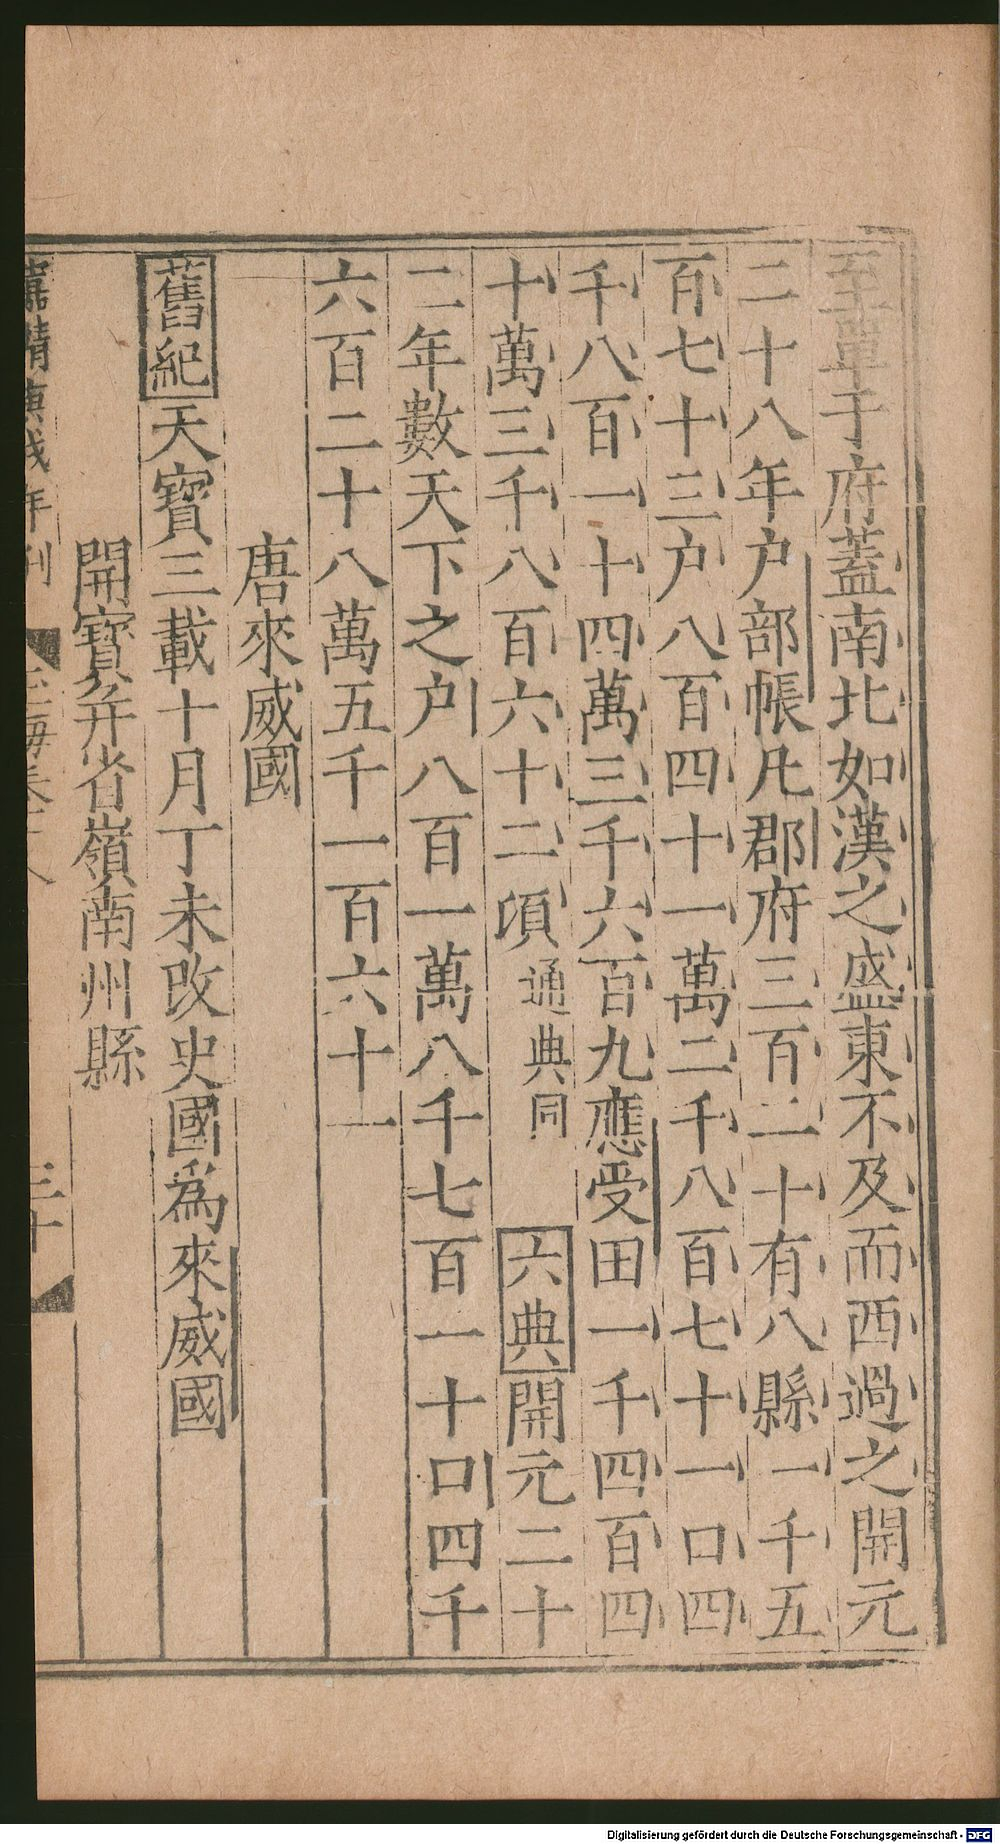 至單于府蓋南北如漢之盛東不及而西過之開元
二十八年户部帳凡郡府三百二十有八縣一千五
百七十三户八百四十一萬二千八百七十一口四
千八百一十四萬三千六百九應受田一千四百四
十萬三千八百六十二項通典同 六典開元二十
二年數天下之户八百一萬八千七百一十口四千
六百二十八萬五千一百六十一
唐來威國
舊紀天寶三載十月丁未改史國爲來威國
開寶并省嶺南州縣
嘉靖庚戌年刊 玉海卷十八 三十
Digitalisierung gefördert durch die Deutsche Forschungsgemeinschaft - DFG